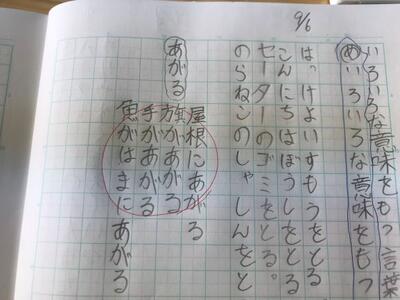 いろいろな意味をもつ言葉
9/6
めいろいろな意味をもつ
はっけよいすもうをとる
こんにちはぼうしをとる
セーターのゴミをとる。
のらねこのしゃしんをと
あがる
屋根にあがる
旗があがる
手があがる
魚がはまにあがる